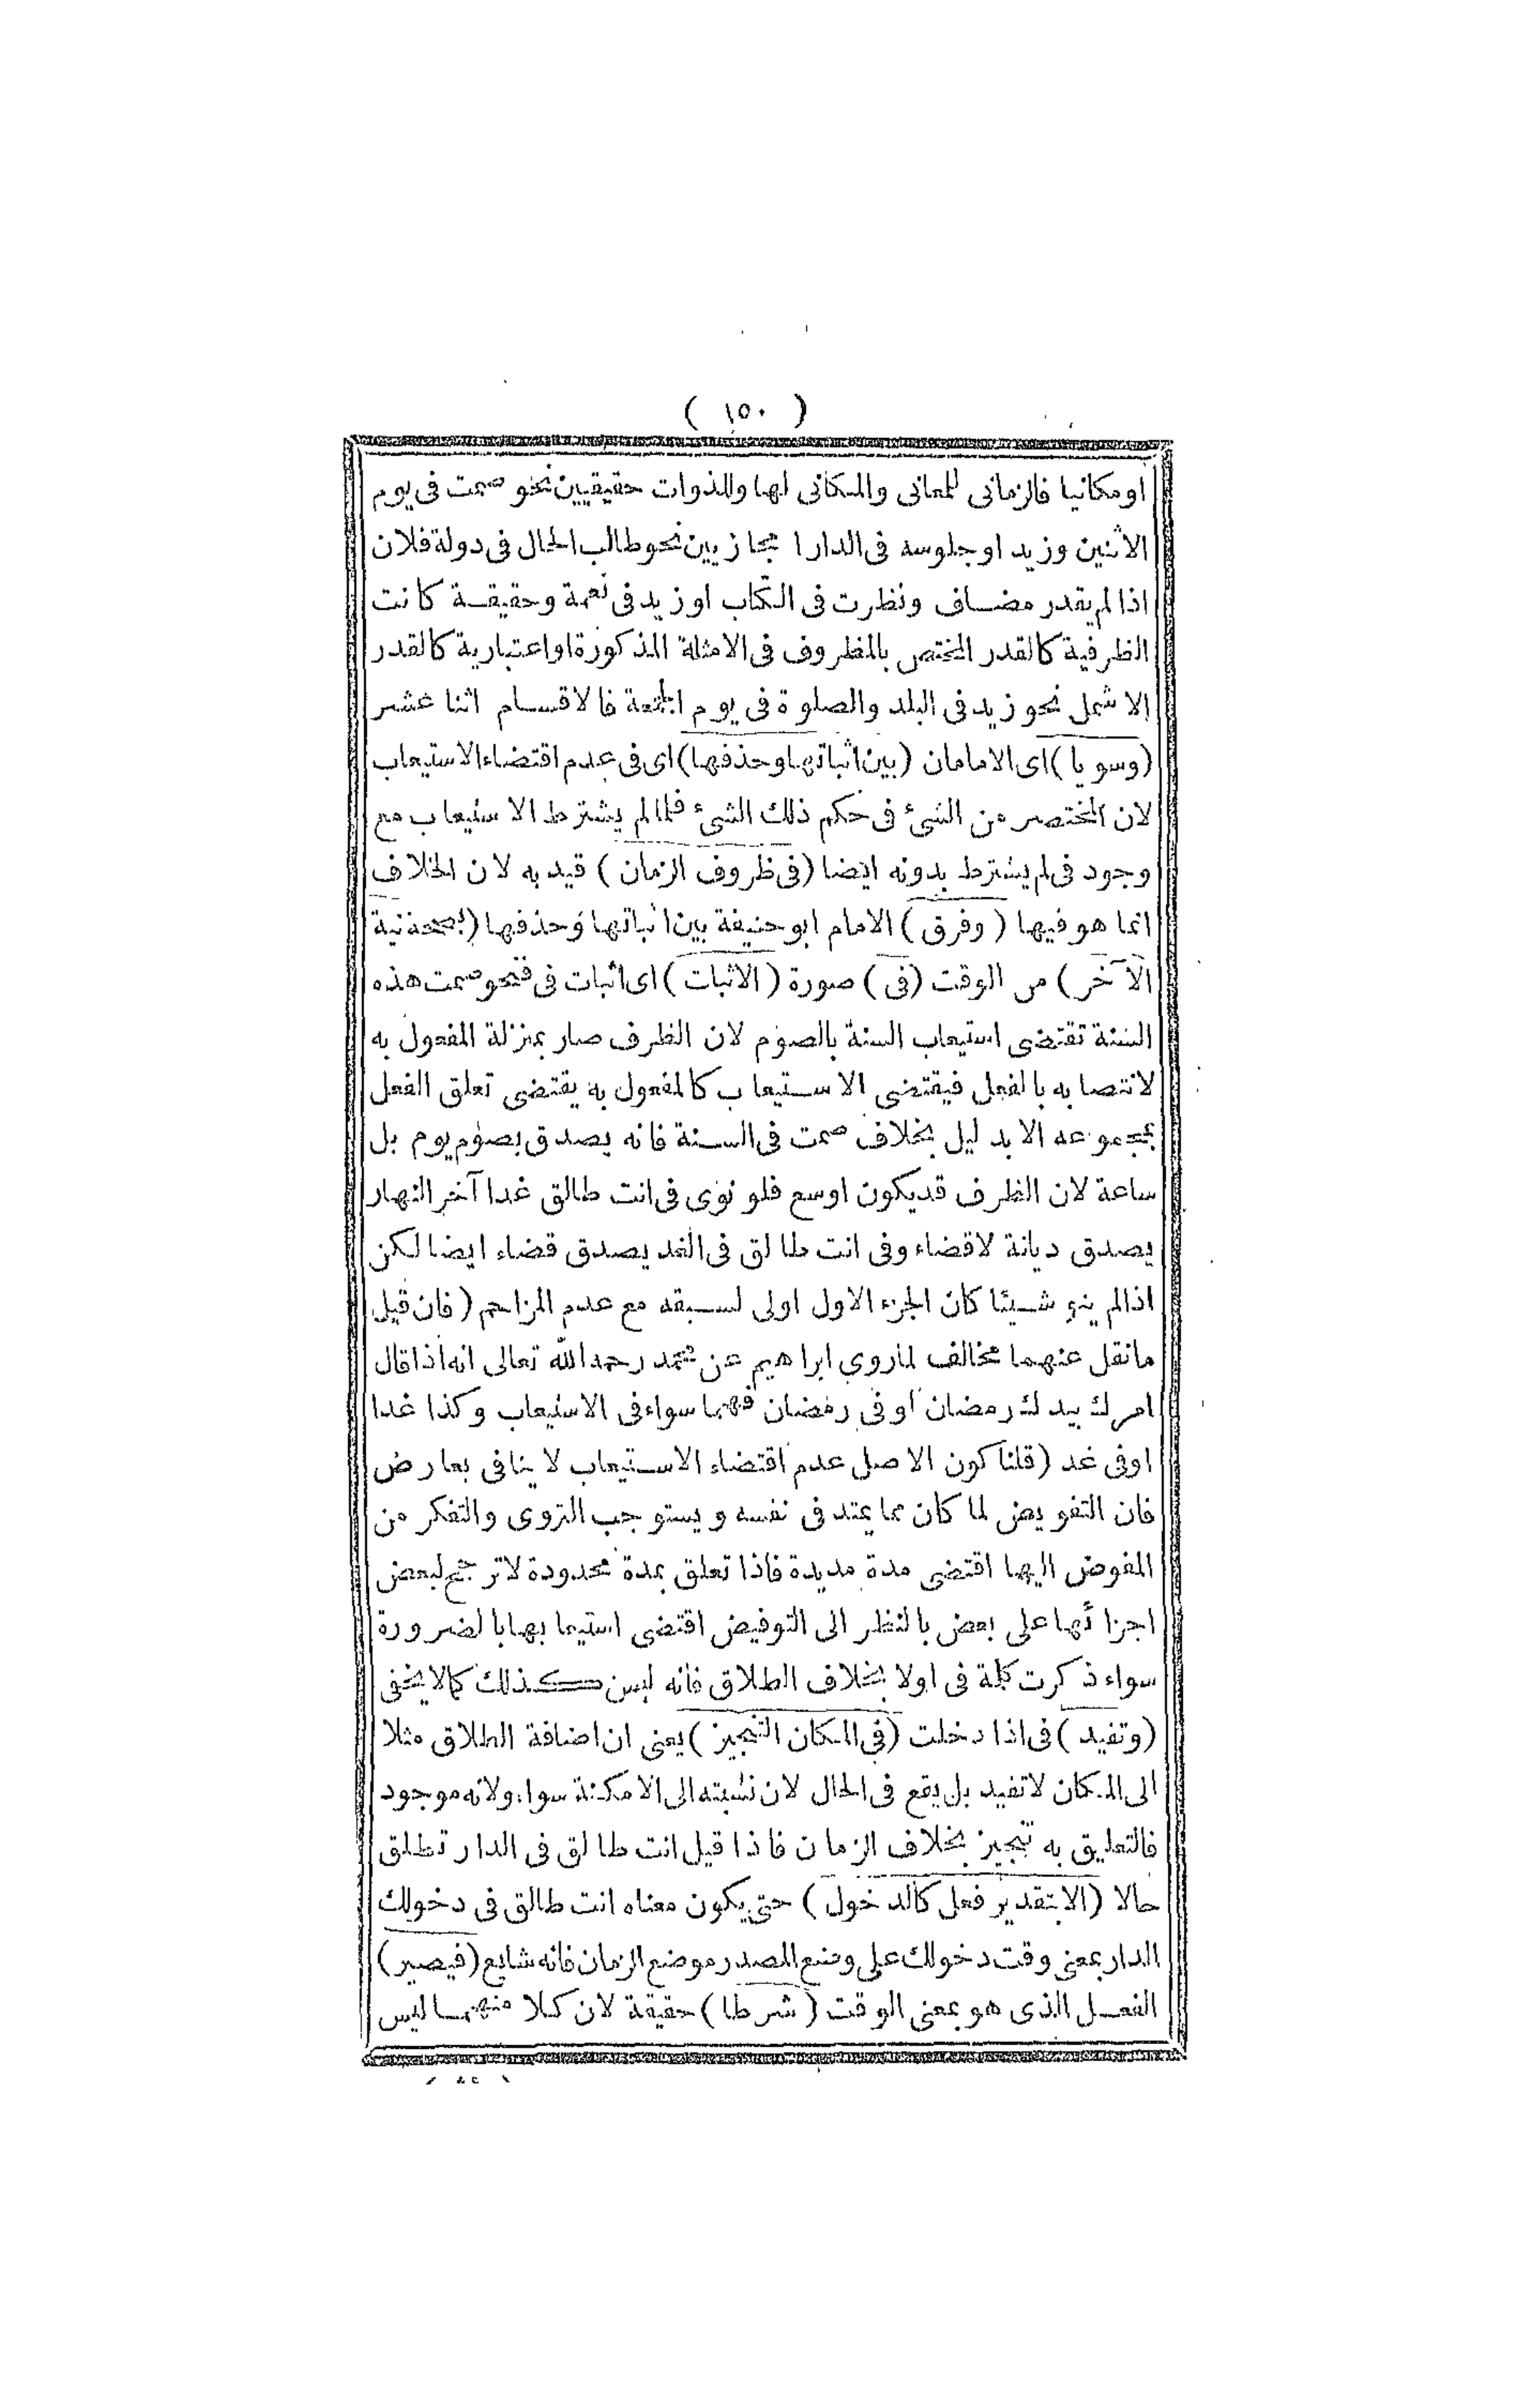 ( ١٥٠ )
او مكانيا فالزمانى للمعانى والمكانى لها وللذوات حقيقيين نحو صمت فى يوم
الاثنين وزيد او جلوسه فى الدار او مجازيين نحو طالب الحال فى دولة فلان
اذا لم يقدر مضاف ونظرت فى الكتاب او زيد فى نعمة وحقيقة كانت
الظرفية كالقدر المختص بالمظروف فى الامثلة المذكورة او اعتبارية كالقدر
الاشمل نحو زيد فى البلد والصلوة فى يوم الجمعة فالاقسام اثنا عشر
(وسويا) اى الامامان (بين اثباتها وحذفها) اى فى عدم اقتضاء الاستيعاب
لان المختصر من الشىء فى حكم ذلك الشىء فلما لم يشترط الاستيعاب مع
وجود فى لم يشترط بدونه ايضا (فى ظروف الزمان) قيد به لان الخلاف
انما هو فيها (وفرق) الامام ابو حنيفة بين اثباتها وحذفها (بصحة نية
الآخر) من الوقت (فى) صورة (الاثبات) اى اثبات فى فنحو صمت هذه
السنة تقتضى استيعاب السنة بالصوم لان الظرف صار بمنزلة المفعول به
لانتصابه بالفعل فيقتضى الاستيعاب كالمفعول به يقتضى تعلق الفعل
بمجموعه الا بدليل بخلاف صمت فى السنة فانه يصدق بصوم يوم بل
ساعة لان الظرف قد يكون اوسع فلو نوى فى انت طالق غدا آخر النهار
يصدق ديانة لا قضاء وفى انت طالق فى الغد يصدق قضاء ايضا لكن
اذا لم ينو شيئا كان الجزء الاول اولى لسبقه مع عدم المزاحم (فان قيل
ما نقل عنهما مخالف لما روى ابراهيم عن محمد رحمه الله تعالى انه اذا قال
امرك بيدك رمضان او فى رمضان فهما سواء فى الاستيعاب وكذا غدا
او فى غد (قلنا كون الاصل عدم اقتضاء الاستيعاب لا ينافى بعارض
فان التفويض لما كان مما يمتد فى نفسه ويستوجب التروى والتفكر من
المفوض اليها اقتضى مدة مديدة فاذا تعلق بمدة محدودة لا ترجح لبعض
اجزائها على بعض بالنظر الى التوفيض اقتضى استيعابها بالضرورة
سواء ذكرت كلمة فى اولا بخلاف الطلاق فانه ليس كذلك كما لا يخفى
(وتفيد) فى اذا دخلت (فى المكان التنجيز) يعنى ان اضافة الطلاق مثلا
الى المكان لا تفيد بل يقع فى الحال لان نسبته الى الامكنة سواء ولانه موجود
فالتعليق به تنجيز بخلاف الزمان فاذا قيل انت طالق فى الدار تطلق
حالا (الا بتقدير فعل كالدخول) حتى يكون معناه انت طالق فى دخولك
الدار بمعنى وقت دخولك على وضع المصدر موضع الزمان فانه شايع (فيصير)
الفعل الذى هو بمعنى الوقت (شرطا) حقيقة لان كلا منهما ليس